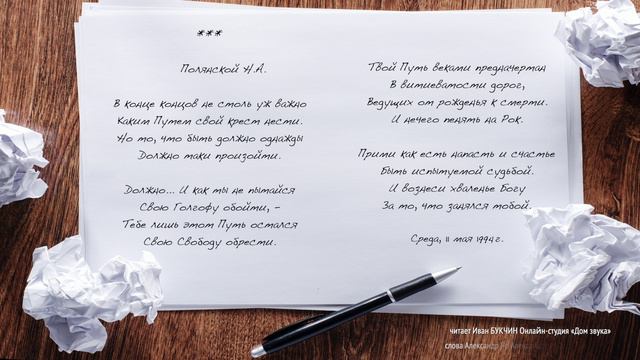 ***
Полянской Н.А.
В конце концов не столь уж важно
Каким Путем свой крест нести.
Но то, что быть должно однажды
Должно таки произойти.
Должно... И как ты не пытайся
Свою Голгофу обойти, –
Тебе лишь этот Путь остался
Свою Свободу обрести.
Твой Путь веками предначертан
В витиеватости дорог,
Ведущих от рожденья к смерти.
И нечего пенять на Рок.
Прими как есть напасть и счастье
Быть испытуемой судьбой.
И вознеси хваленье Богу
За то, что занялся тобой.
Среда, 11 мая 1994г.
читает Иван БУКЧИН Онлайн-студия «Дом звука»
слова Александр